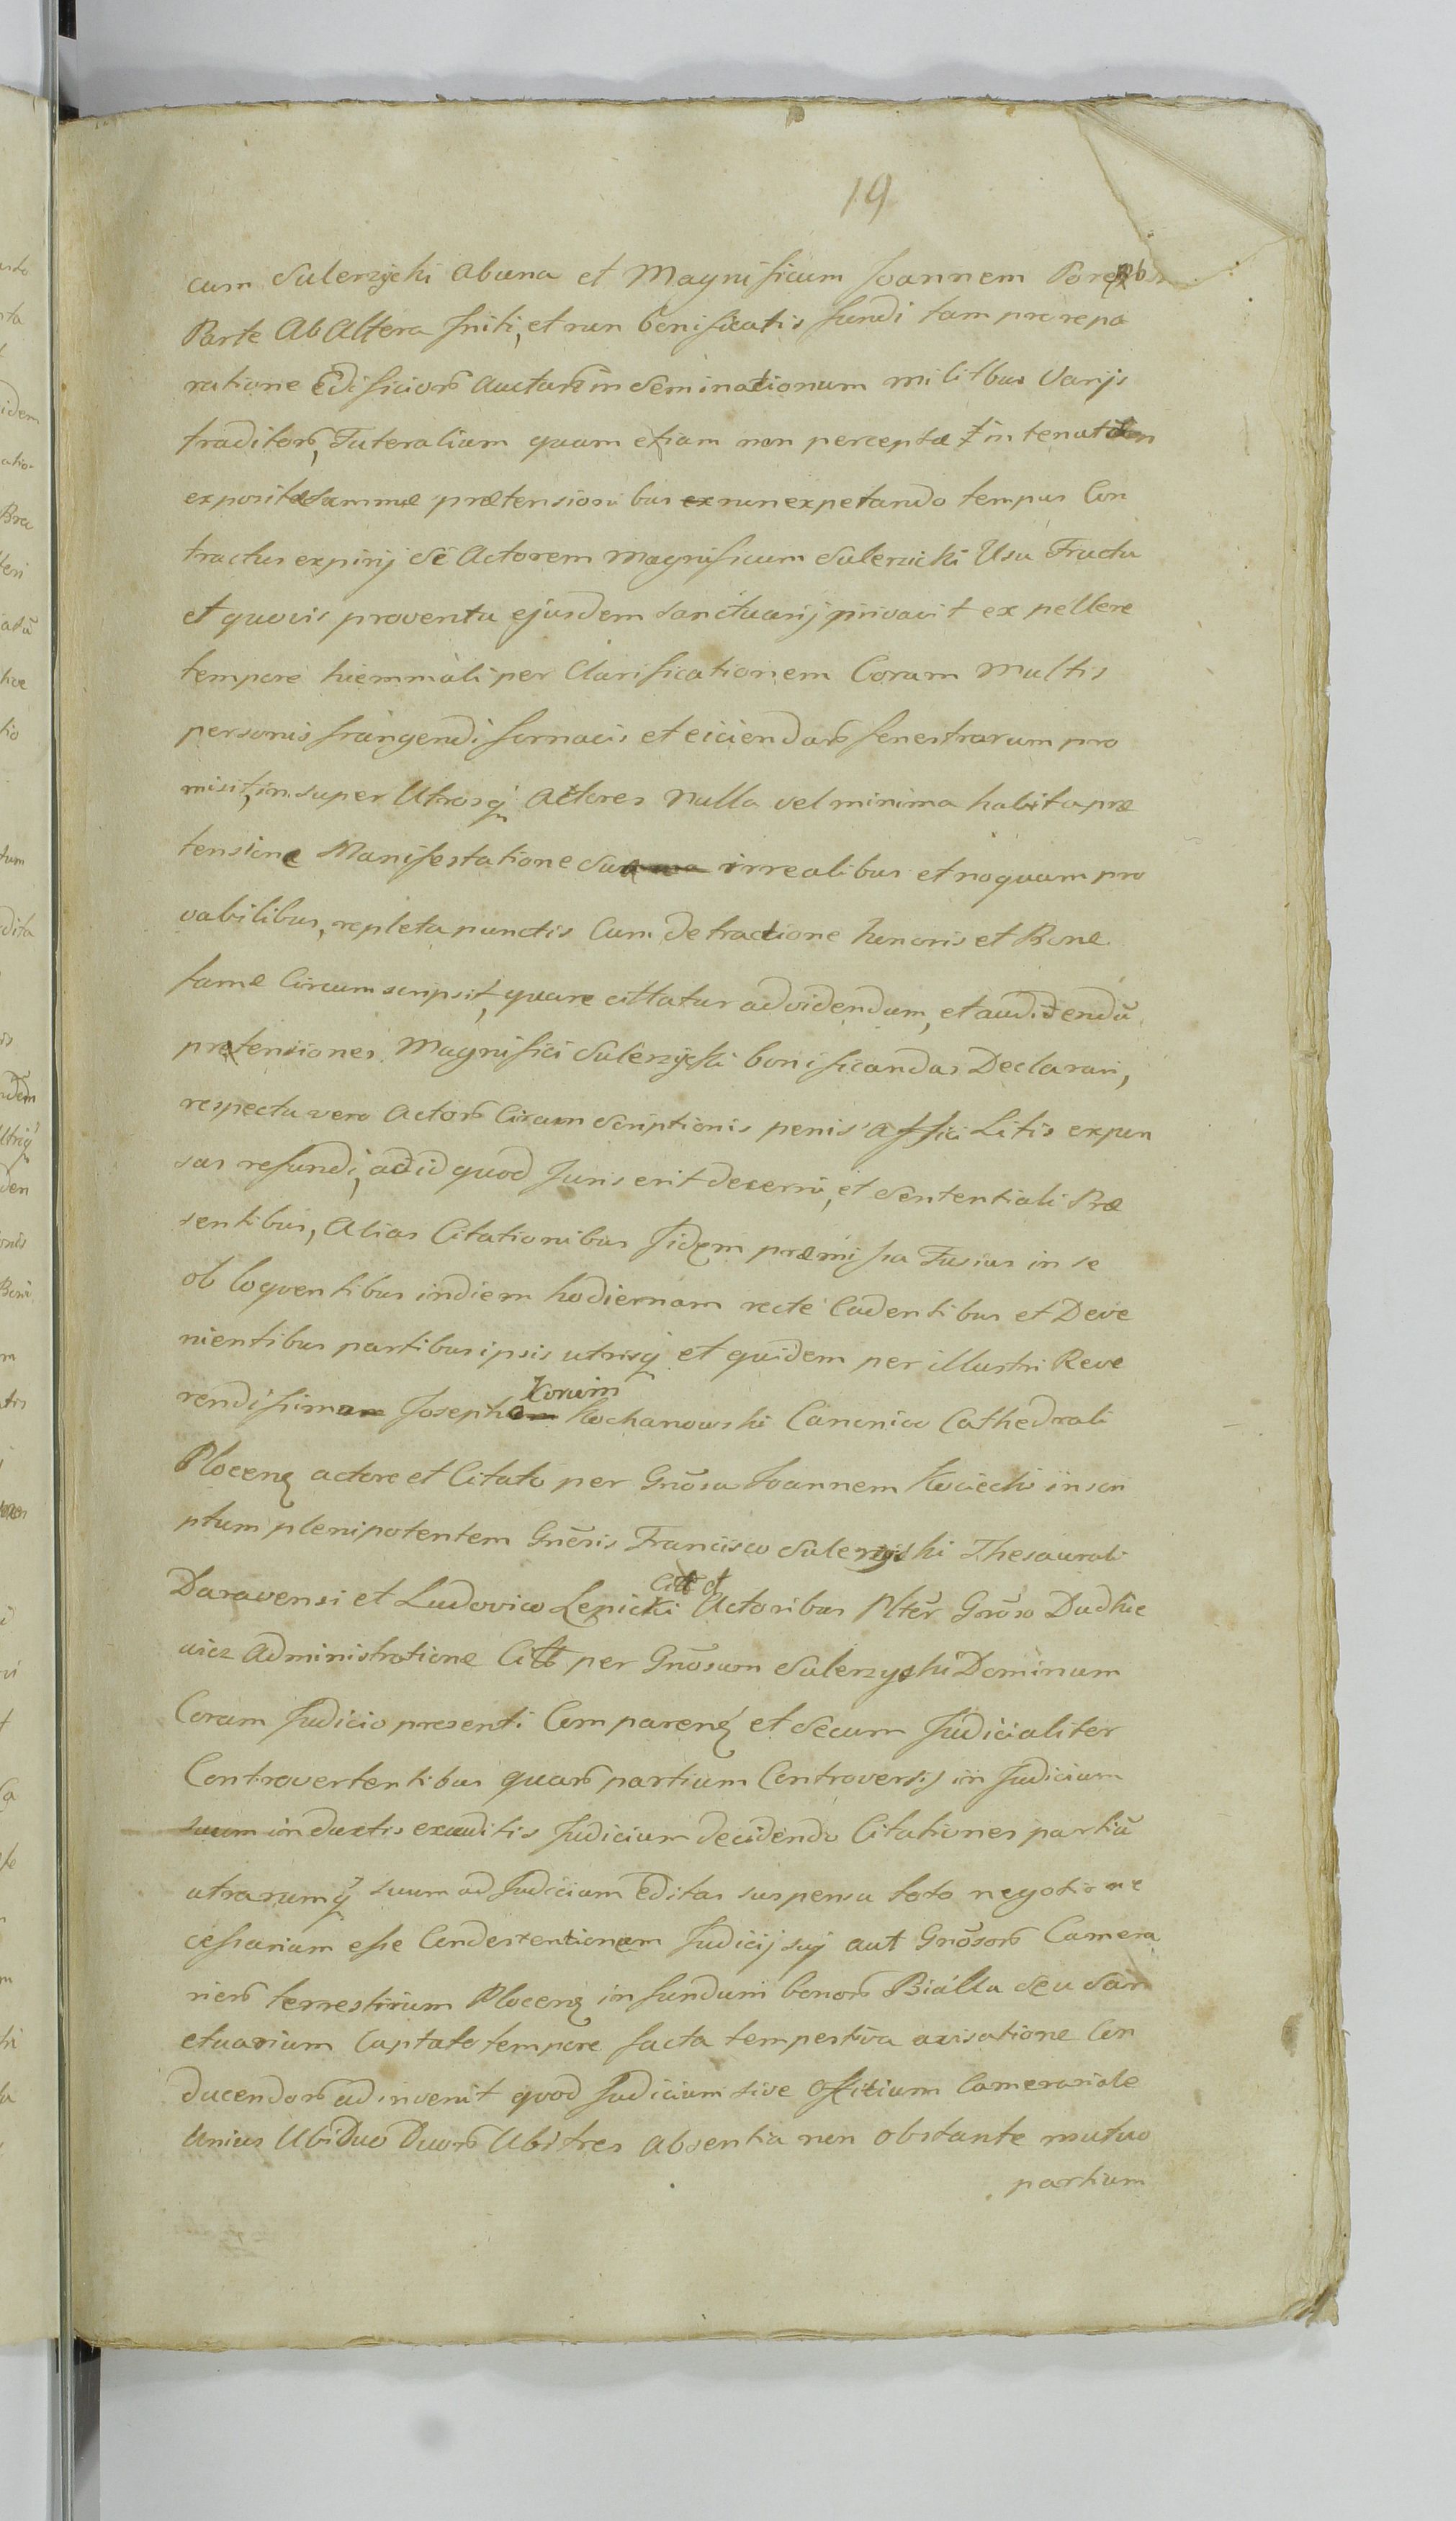 19
cum Sulerzycki abuna et Magnificum Joannem
Parte Ab Altera Initi, et non bonificatis fundi tam pro repa
ratione Edificiorũ Auctarũ in Seminationum militbus Varijs
traditorũ, Tuteralium quam etiam non perceptæ in
expositæ Summæ prætensionibus non expetando tempus Con
tractus expirij Se Actorem Magnificum Sulerzicki Usu Fructu
et quovis proventu ejusdem Sanctuarij privavit expellere
tempore hiemmali per Clarificationem Coram Multis
personis frangendi fornacis et eiciendarũ fenestrarum pro
misit, in super Utrosq Actores Nulla vel minima habita præ
tensione Manifestatione Sua irrealibus et noquam pro
vabilibus, repleta punctis Cum detractione honoris et Bonæ
famæ Circumscripsit, quare cittatur ad videndum, et audidendũ
pretensiones Magnifici Sulerzycki bonificandas Declarari,
respectu vero Actorũ Circumscriptionis penis affici Litis expen
sas refundi, ad id quod Juris erit decerni, et Sententiali Præ
sentibus, Alias Citationibus Fidem præmissa Fusius in se
obloquentibus in diem hodiernam recte Cadentibus et Deve
nientibus partibus ipsis utrisq et quidem per illustri Reve
rendissimo Josepho Korwin Kochanowski Canonico Cathedrali
Plocenz actore et Citato per Gnõsu Joannem Kociecki in scri
ptum plenipotentem Gnẽris Francisco Sulerzycki Thesaurali
Daravensi et Ludovico Lepicki Citt et Actoribus Pltẽr Gnõso Dudkie
wicz Administratione Citt per Gnõsum Sulerzycki Dominum
Coram Judicio presenti Comparenz et Secum Judicialiter
Controvertentibus quarũ partium Controversijs in Judicium
suum inductis exauditis Judicium decidendo Citationes partiũ
utrarumq suum ad Judicium Editas suspensu toto negotio ne
cessariam esse Condestentionem Judicij suj aut Gnõsorũ Camera
riorũ terrestrium Plocenz in fundum bonorũ Bialla seu San
ctuarium Captato tempore facta tempestiva avisatione Con
ducendorũ adinvenit quod Judicium sive Officium Camerariale
Unius Ubi Duo Duorũ Ubi tres absentia non obstante mutuo
partium